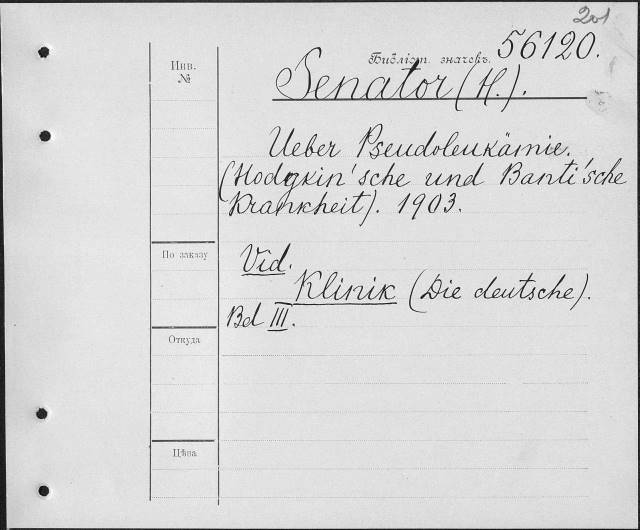 201
Инв.
№
Библіот. значекъ. 56120.
Senator (H.).
Ueber Pseudoleukämie.
(Hodgkin'sche und Banti'sche
Krankheit). 1903.
По заказу
Vid.
Klinik (Die deutsche).
Bd III.
Откуда
Цѣна